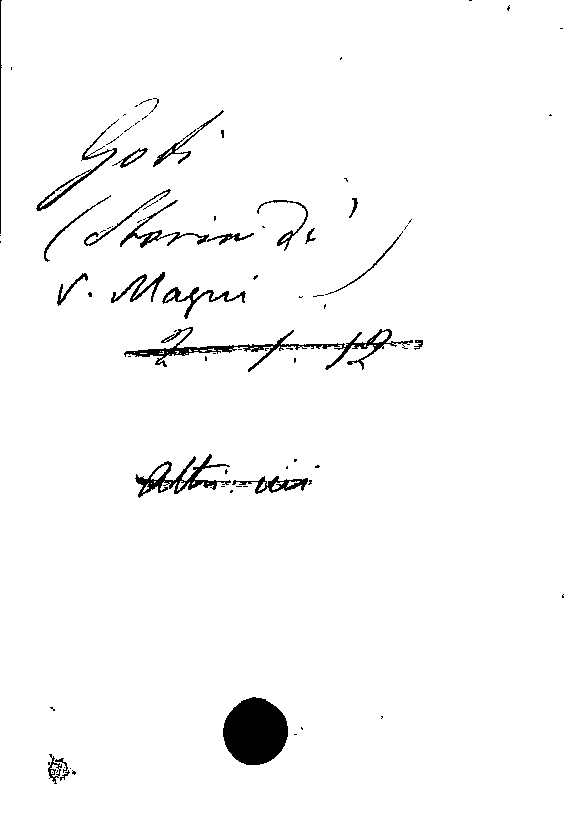 Goti
(Storia di
V. Magni)
2. 1. 12
Altri